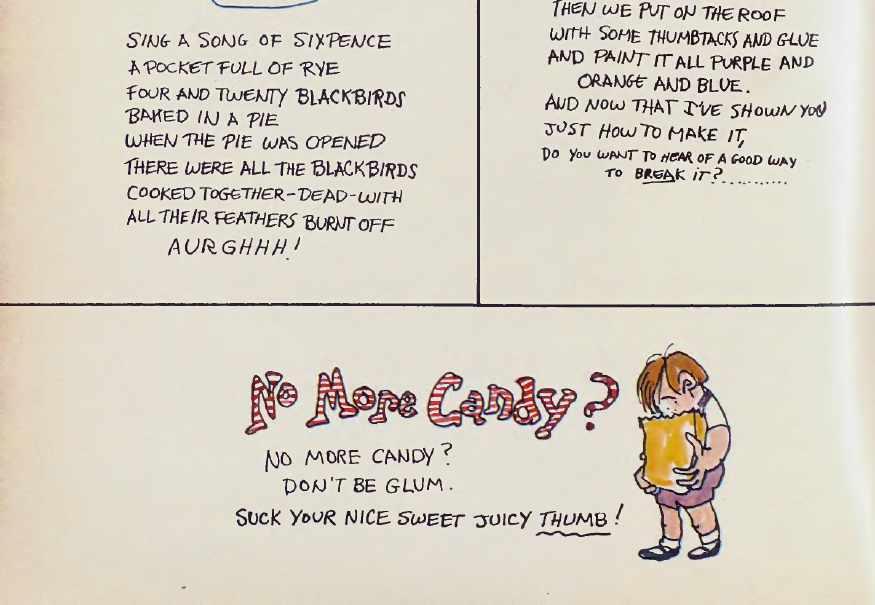 SING A SONG OF SIXPENCE
A POCKET FULL OF RYE
FOUR AND TWENTY BLACKBIRDS
BAKED IN A PIE
WHEN THE PIE WAS OPENED
THERE WERE ALL THE BLACKBIRDS
COOKED TOGETHER-DEAD-WITH
ALL THEIR FEATHERS BURNT OFF
AURGHHH!
THEN WE PUT ON THE ROOF
WITH SOME THUMBTACKS AND GLUE
AND PAINT IT ALL PURPLE AND
ORANGE AND BLUE.
AND NOW THAT I'VE SHOWN YOU
JUST HOW TO MAKE IT,
DO YOU WANT TO HEAR OF A GOOD WAY
TO BREAK IT?...........
No More Candy?
NO MORE CANDY?
DON'T BE GLUM.
SUCK YOUR NICE SWEET JUICY THUMB!